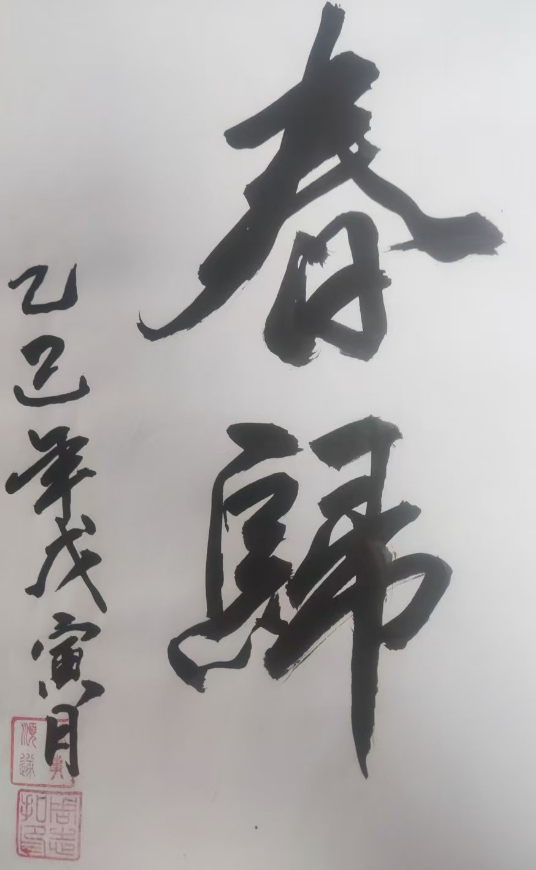 春歸
乙巳年戊寅月